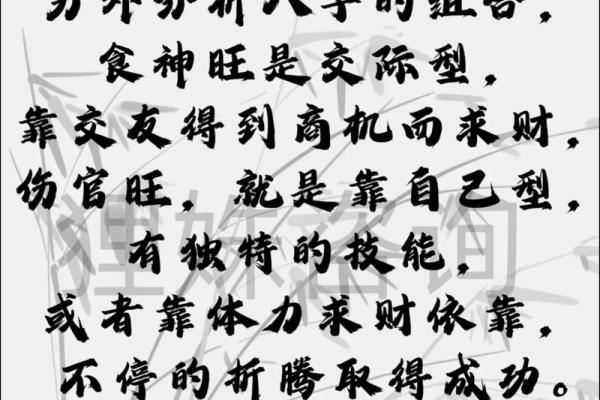 另外分析八字的组合，
食神旺是交际型，
靠交友得到商机而求财，
伤官旺，就是靠自己型，
有独特的技能，
或者靠体力求财依靠，
不停的折腾取得成功。
狸姝咨询